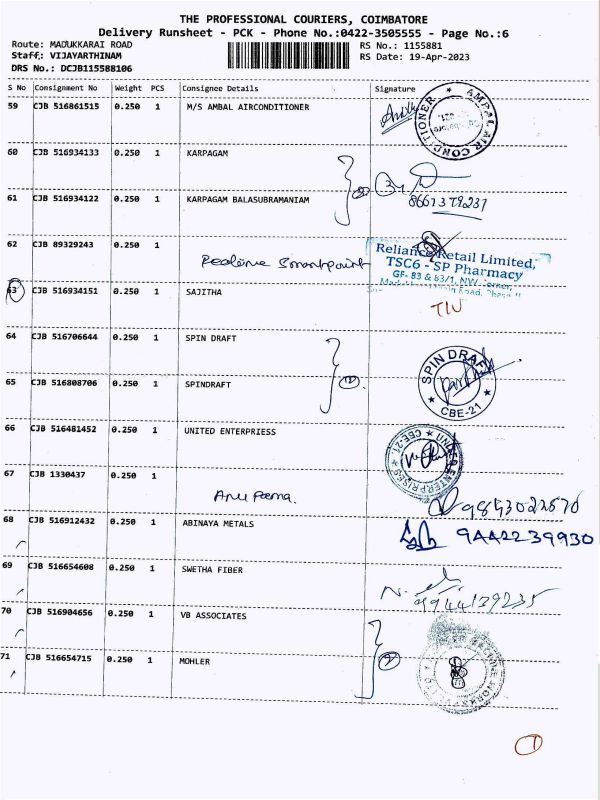 THE PROFESSIONAL COURIERS, COIMBATORE
Delivery Runsheet - PCK - Phone No.:0422-3505555 - Page No.:6
Route: MADUKKARAI ROAD RS No.: 1155881
Staff: VIJAYARTHINAM RS Date: 19-Apr-2023
DRS No.: DCJB115588106
S No Consignment No Weight PCS Consignee Details Signature
59 CJB 516861515 0.250 1 M/S AMBAL AIRCONDITIONER
AMBAL AIR CONDITIONER
60 CJB 516934133 0.250 1 KARPAGAM
61 CJB 516934122 0.250 1 KARPAGAM BALASUBRAMANIAM
2
8667379237
62 CJB 89329243 0.250 1
Reliance Smartpoint
Reliance Retail Limited,
TSC6 - SP Pharmacy
GF- 83 & 83/1, NW Corner,
Road, Phase II
63 CJB 516934151 0.250 1 SAJITHA
TIN
64 CJB 516706644 0.250 1 SPIN DRAFT
65 CJB 516808706 0.250 1 SPINDRAFT
2
SPIN DRAFT
CBE-21
66 CJB 516481452 0.250 1 UNITED ENTERPRIESS
ENTERPRISES
CBE-21
67 CJB 1330437 0.250 1
Anupama.
9893022670
68 CJB 516912432 0.250 1 ABINAYA METALS
9442239930
69 CJB 516654608 0.250 1 SWETHA FIBER
9944139235
70 CJB 516904656 0.250 1 VB ASSOCIATES
71 CJB 516654715 0.250 1 MOHLER
2
1